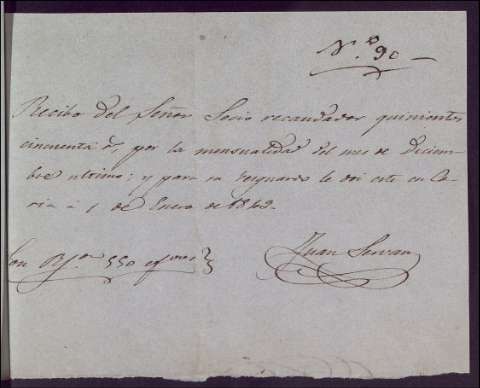 N.º 90
Recibo del Señor Socio recaudador quinientos
cincuenta r.s por la mensualidad del mes de Diciem-
bre ultimo: y para su resguardo le doi este en Co-
ria à 1 de Enero de 1843.
Son R.s v.on 550
Juan Servan